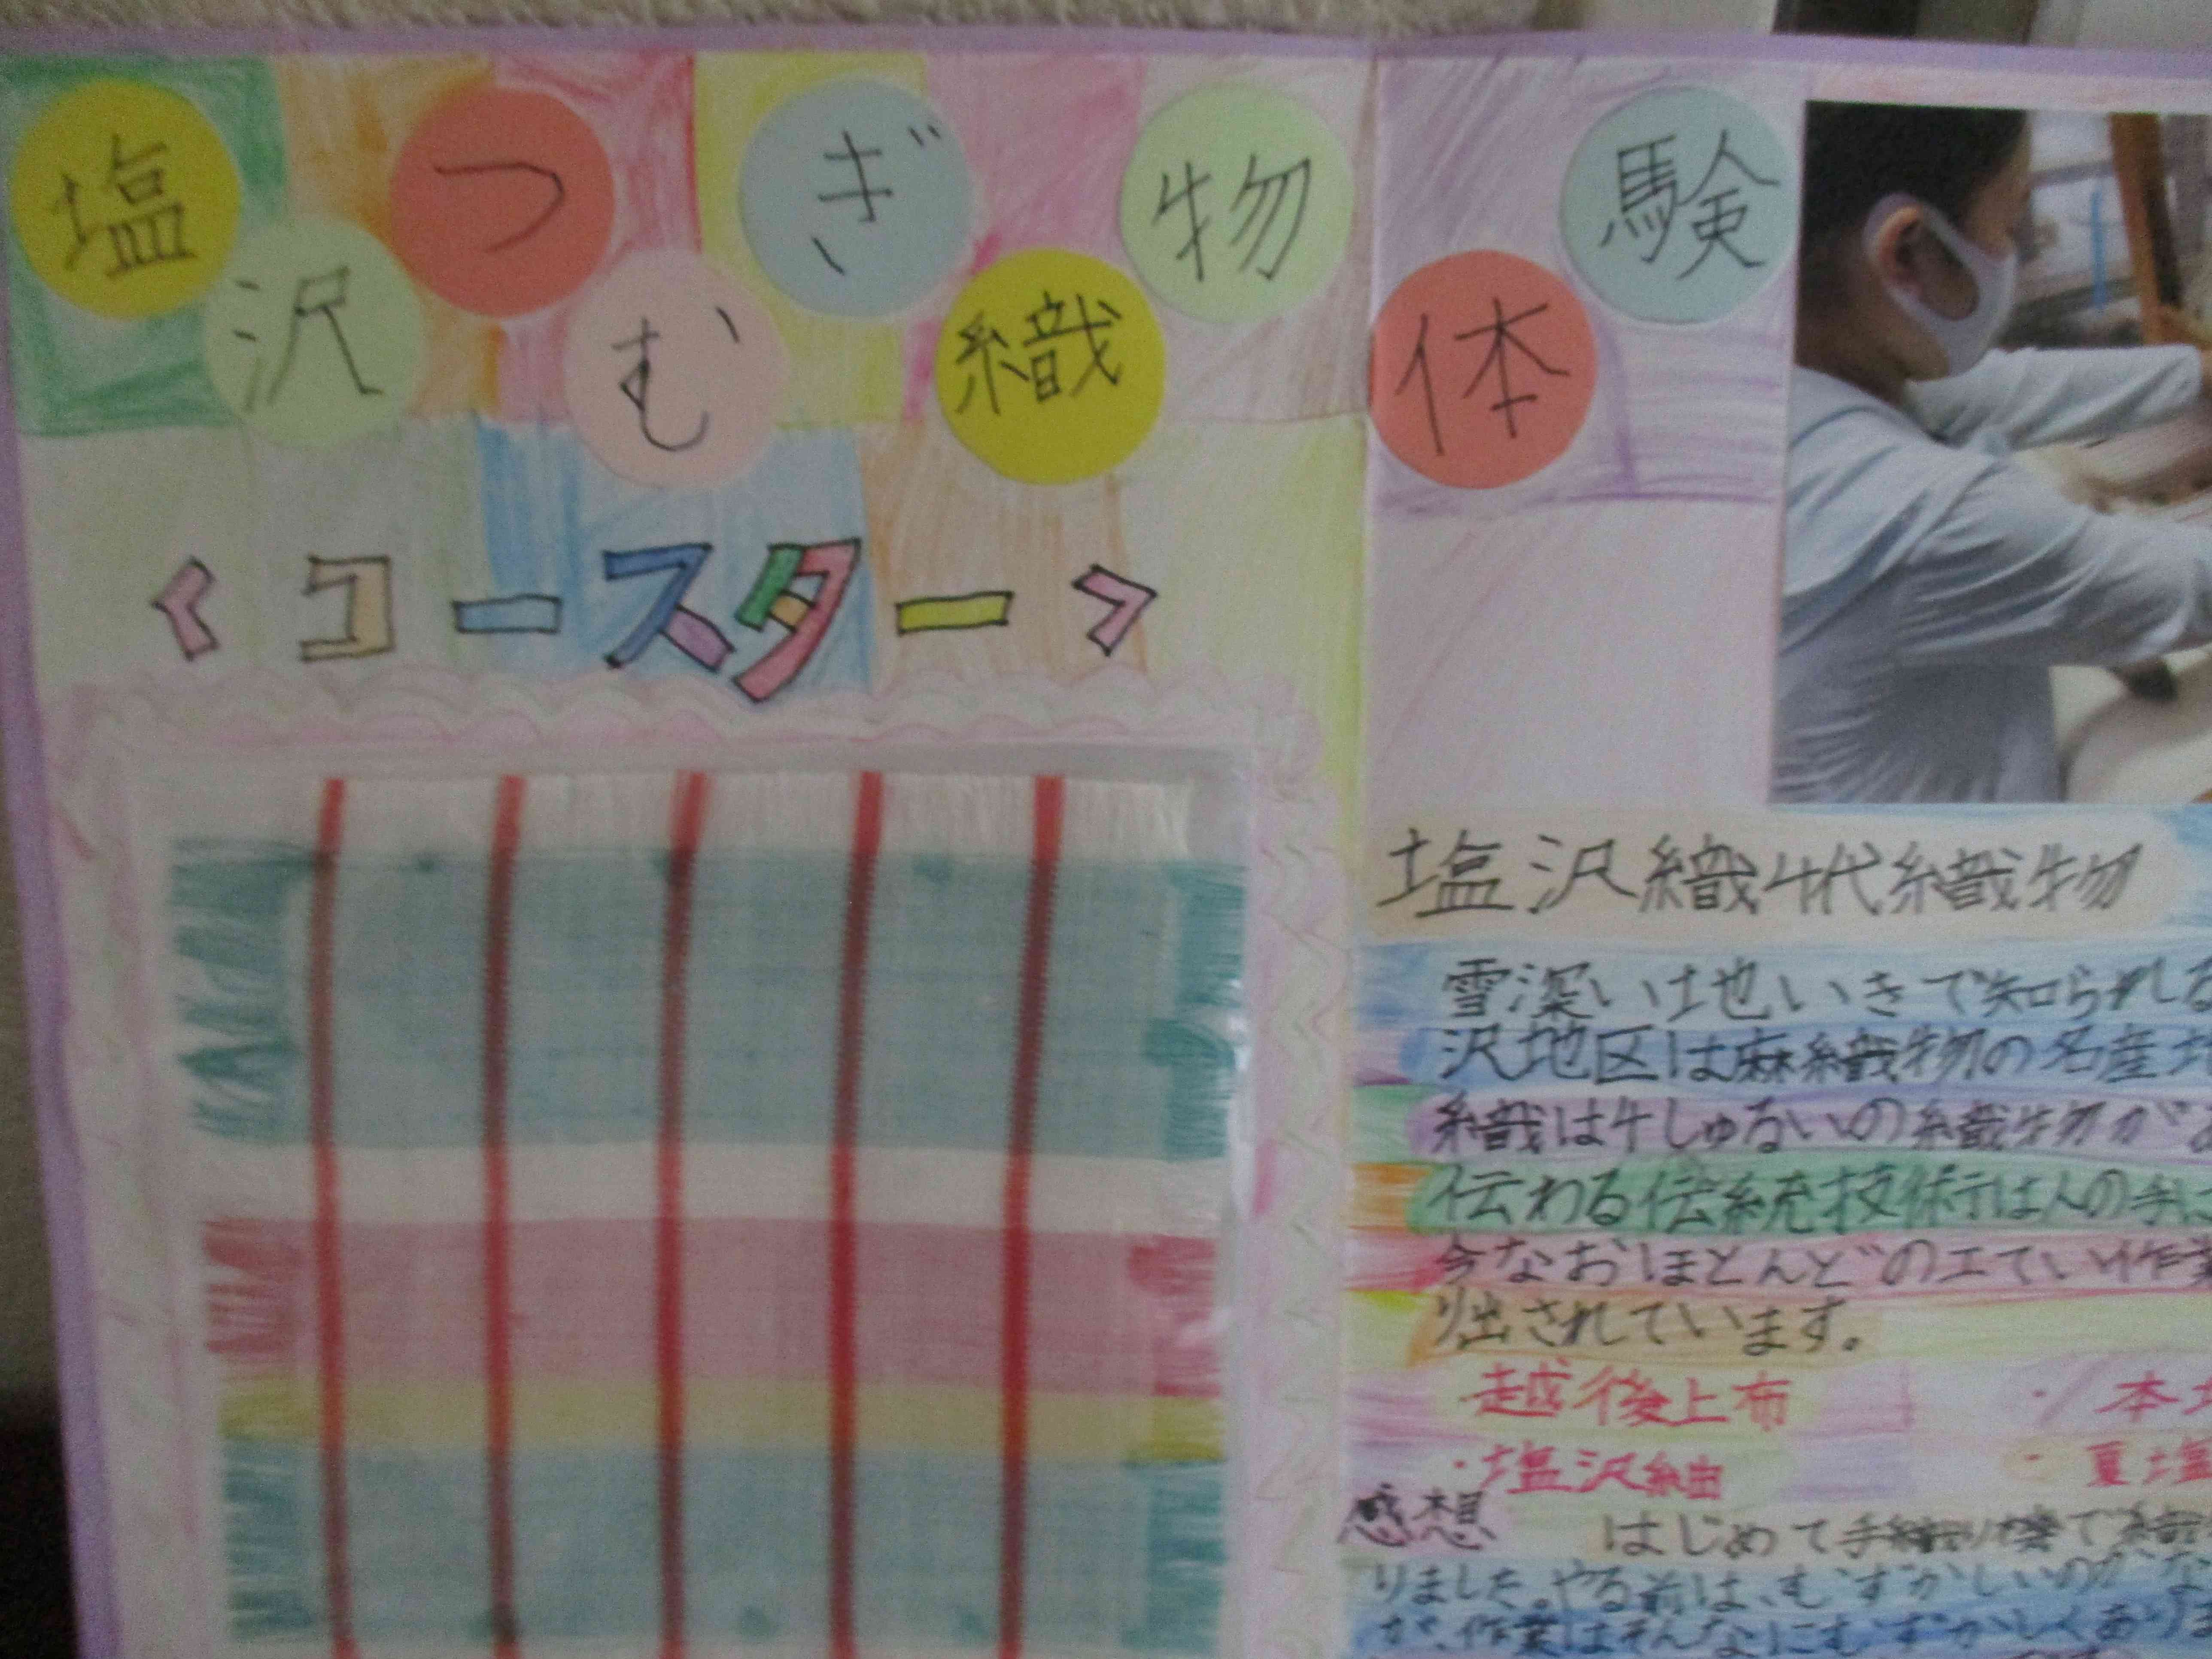 塩沢つむぎ織物体験
<コースター>
塩沢織代織物
雪深い地いきで知られる
沢地区は麻織物の名産地
織は4しゅるいの織物が
伝わる伝統技術は人の手
今なおほとんどの工てい作業
り出されています。
越後上布 ・本
・塩沢紬 ・夏塩
感想 はじめて手織り機で織
りました。やる前は、むずかしいのかな
が、作業はそんなにむずかしくあり